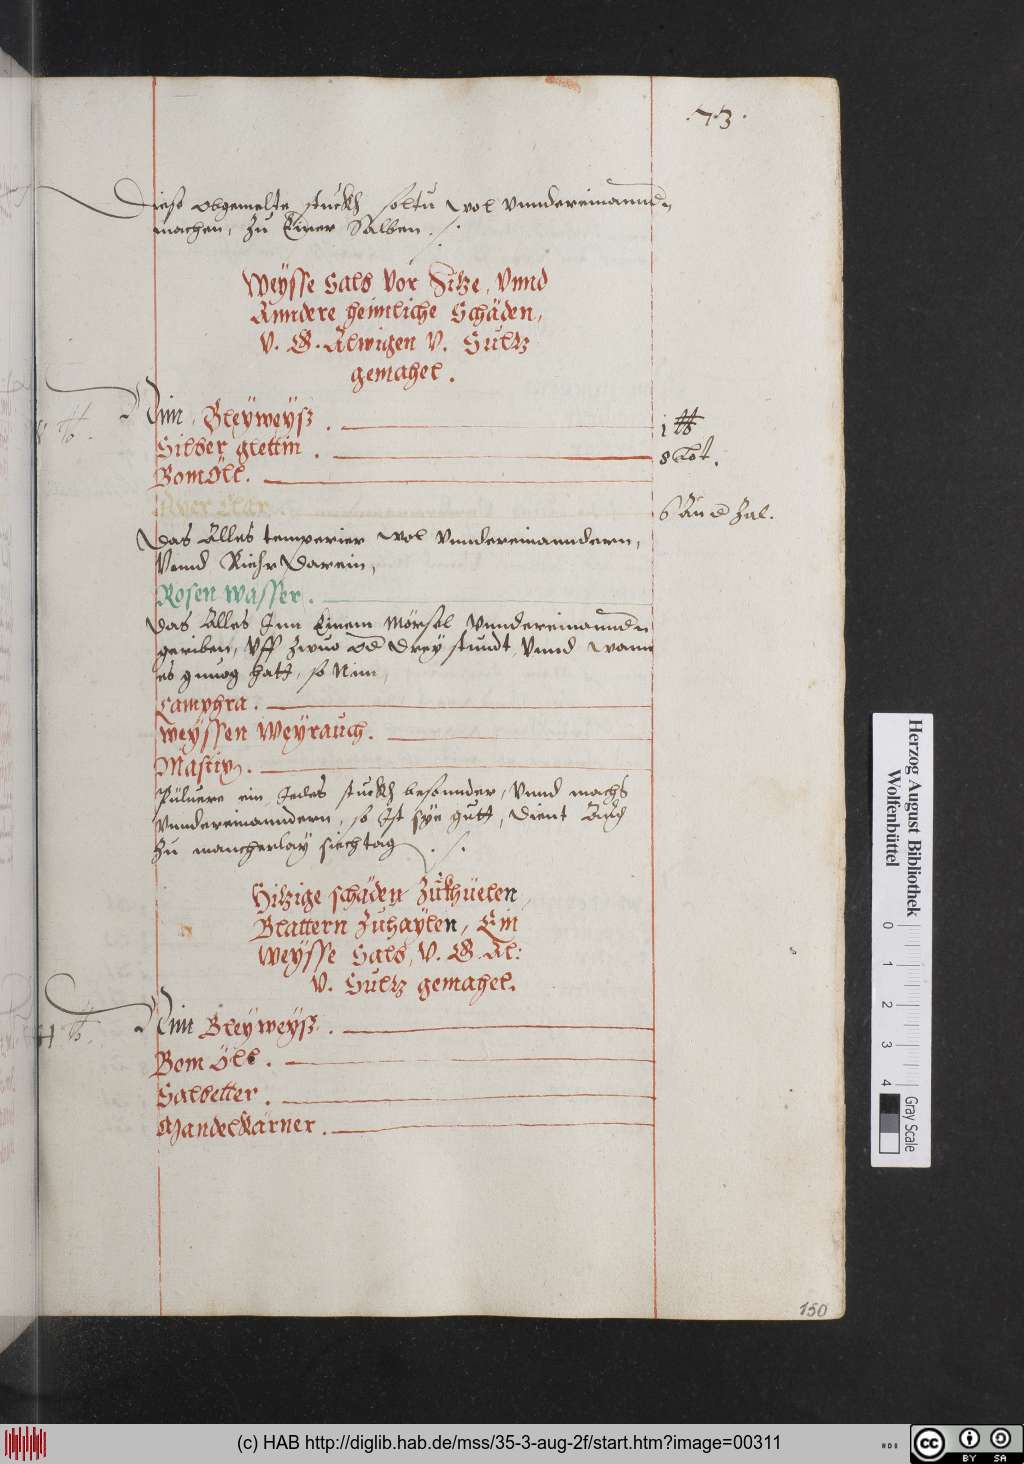 .73.
Diese obgemelte stuckh soltu wol vnndereinannd[er]
machen, zu Einer Salben ./.
Weysse Salb vor Fitze, Vnnd
Anndere heimliche Schäden,
V. G. Alwigen V. Sultz
gemahel.
Nim Bleyweyß. 1 ℔
Silber glettin. 8 Lot.
Bomöll.
Ayer Clar. 6 An d Zal.
Das Alles temperier wol vnndereinanndern,
Vnnd Riehr Darein,
Rosen Wasser.
Das Alles Inn Einem Mörsel vnndereinannd
geriben, Vff zwuo od Drey stundt, Vnnd wann
es gnuog hatt, so Nim,
Camphra.
Weyssen Weyrauch.
Mastix.
Püluere ein Jedes stuckh besonnder, Vnnd machs
Vnndereinanndern, so Ist sye gutt, Dient Auch
Zu mancherlay siechtag ./.
Hitzige schäden Zukhüelen,
Blattern Zuhaylen, Ein
Weysse Salb, V. G. Al:
V. Sultz gemahel.
Nim Bleyweyß.
Bom Öll.
Salbetter.
Mandelkärner.
150
Herzog August Bibliothek
Wolfenbüttel
0 1 2 3 4
Gray Scale
(c) HAB http://diglib.hab.de/mss/35-3-aug-2f/start.htm?image=00311
cc BY SA